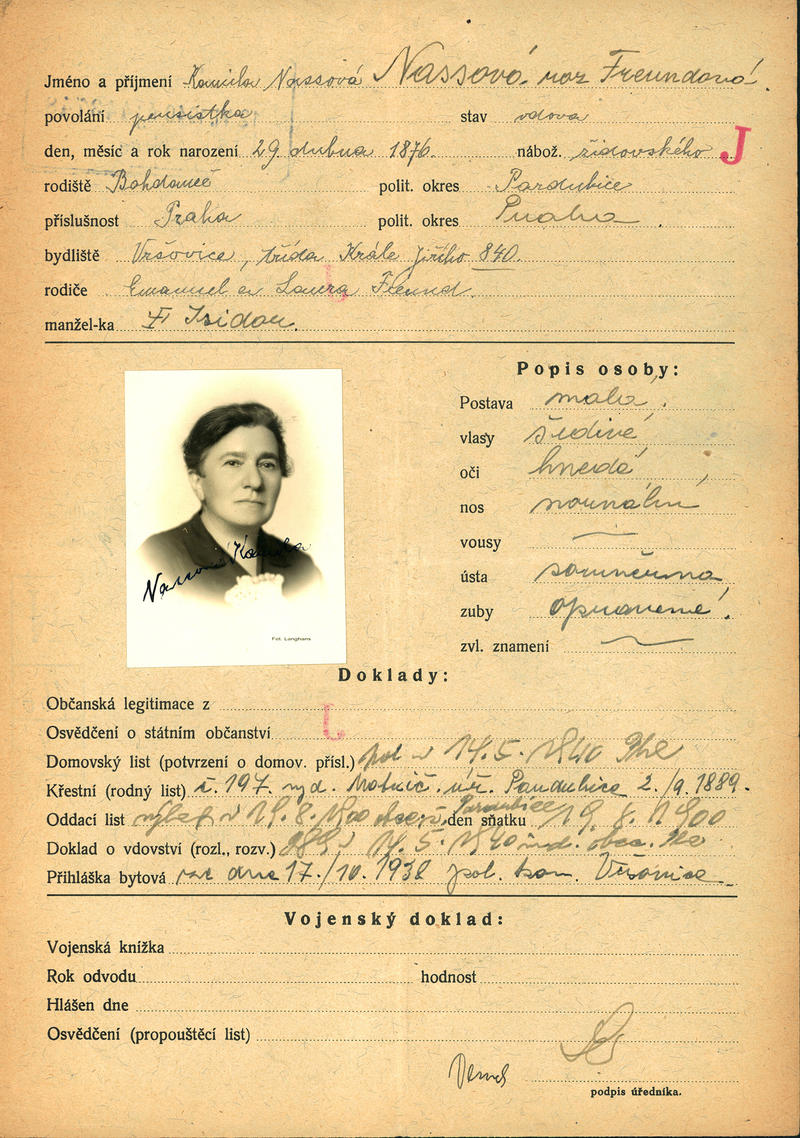 Jméno a příjmení Kamila Nassová Nassová roz Freundová.
povolání pensistka stav vdova
den, měsíc a rok narození 29 dubna 1876. nábož. židovského J
rodiště Bohdaneč polit. okres Pardubice
příslušnost Praha polit. okres Praha.
bydliště Vršovice, třída Krále Jiřího 840.
rodiče Emanuel a Laura Freund.
manžel-ka Isidor.
Popis osoby:
Postava malá,
vlasy šedivé
oči hnědé,
nos normální
vousy —
ústa souměrná
zuby opravené.
zvl. znamení —
Nassová Kamila
Fot. Langhans
Doklady:
Občanská legitimace z
Osvědčení o státním občanství
J
Domovský list (potvrzení o domov. přísl.) 14.5.1940
Křestní (rodný list) č. 197. vyd. Pardubice 2./9. 1889.
Oddací list 19.8.1900 Pardubice den sňatku 19. 8. 1900
Doklad o vdovství (rozl., rozv.) 14.5.1940
Přihláška bytová ze dne 17./10. 1938 pol. kom. Vršovice
Vojenský doklad:
Vojenská knížka
Rok odvodu hodnost
Hlášen dne
Osvědčení (propouštěcí list)
podpis úředníka.